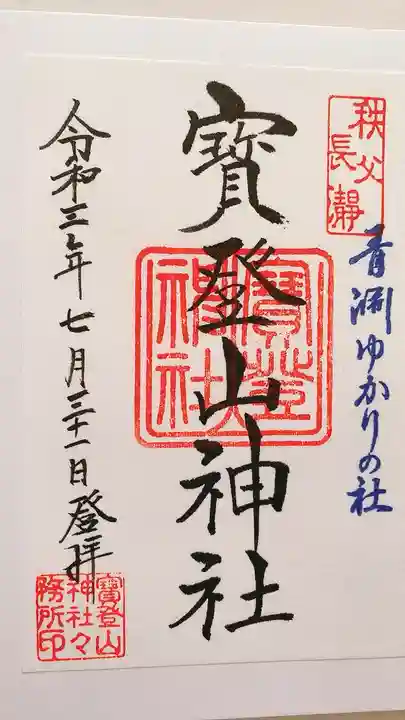 秩父
長瀞
青淵ゆかりの社
寳登山神社
寳登山
神社
令和三年七月三十一日登拝
寳登山
神社々
務所印